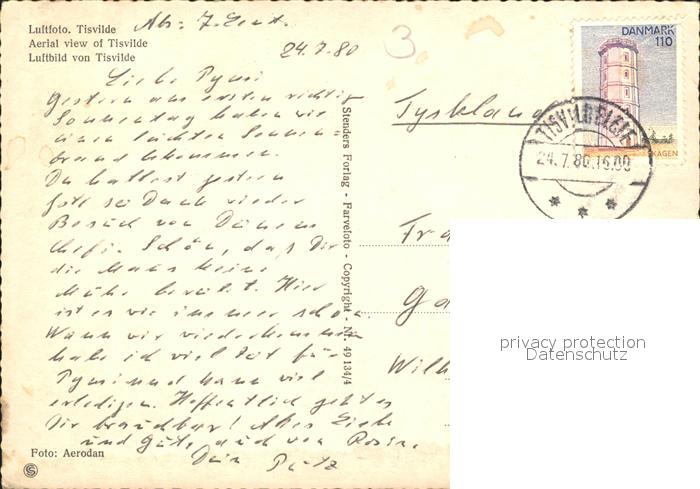 Luftfoto. Tisvilde
Aerial view of Tisvilde
Luftbild von Tisvilde
Ab:
24.7.80
3.
DANMARK
110
SKAGEN
TISVILDELEJE
24.7.80.16.00
Tyskland
Liebe Pymi
Gestern am ersten richtigen
Sonnentag haben wir
einen leichten Sonnen-
brand bekommen.
Du hattest gestern
Besuch von Deinem
Chefi. Schön, daß Dir
die Maus keine
Mühe bereitet. Hier
ist es wie immer schön.
Wann wir wiederkommen
habe ich viel Zeit für
Pymi und kann viel
erledigen. Hoffentlich geht es
Dir brauchbar! Alles Liebe
und Gute, auch von
Dein Putz
Stenders Forlag - Farvefoto - Copyright - Nr. 49134/4
Fr
Ga
Wilh
privacy protection
Datenschutz
Foto: Aerodan
S